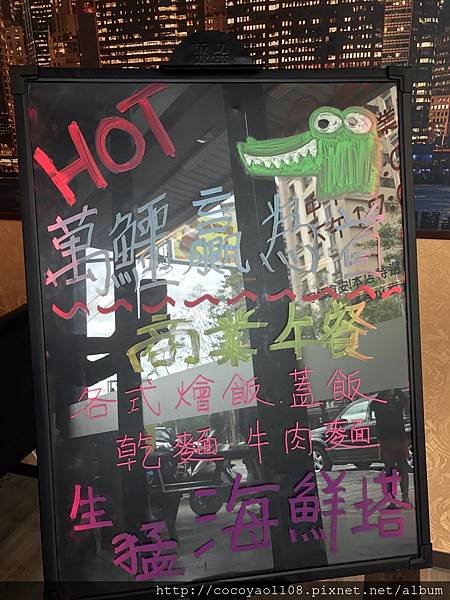 HOT
萬鱷贏為首
商業午餐
各式燴飯.蓋飯
乾麵 牛肉麵
生猛海鮮塔
http://cocoyao1108.pixnet.net/album